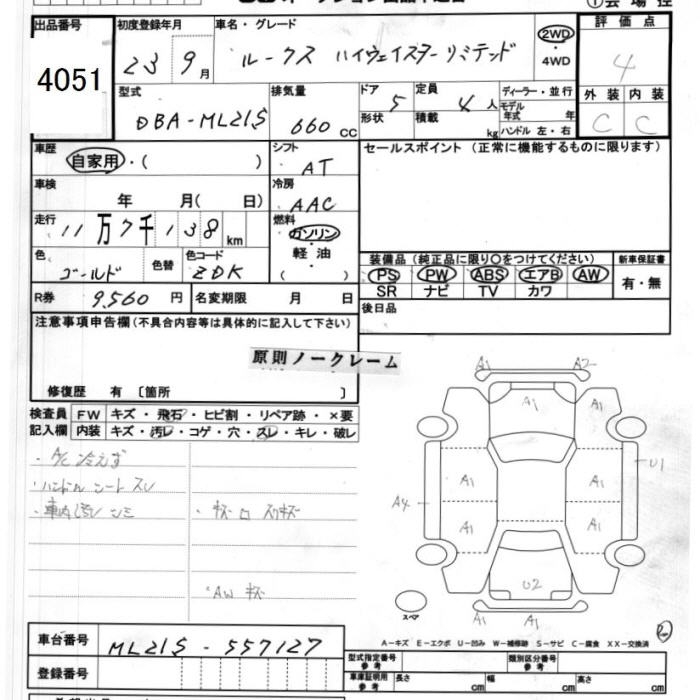 ①会場控
出品番号 初度登録年月 車名・グレード 評価点
4051 23 9月 ルークス ハイウェイスターリミテッド 2WD・4WD 4
型式 排気量 ドア 定員 ディーラー・並行 外装 内装
DBA-ML21S 660CC 5 4人 モデル年式 年 C C
形状 積載 kg ハンドル 左・右
車歴 自家用・( ) シフト AT セールスポイント(正常に機能するものに限ります)
車検 年 月( 日) 冷房 AAC
走行 11万7千138km 燃料 ガソリン・軽油( )
色 ゴールド 色替 色コード ZDK
装備品(純正品に限り○をつけてください) 新車保証書
PS PW ABS エアB AW 有・無
SR ナビ TV カワ
R券 9,560円 名変期限 月 日 後日品
注意事項申告欄(不具合内容等は具体的に記入して下さい)
原則ノークレーム
修復歴 有〔箇所 〕
検査員 FW キズ・飛石・ヒビ割・リペア跡・×要
記入欄 内装 キズ・汚レ・コゲ・穴・スレ・キレ・破レ
・A/C冷えず
・ハンドル シート スレ
・車内汚レ シミ
・AW キズ
A1 A2
A1
A1 A1 U1
A4
A1 A1
U2
A1 A1
スペア
A-キズ E-エクボ U-凹み W-補修跡 S-サビ C-腐食 XX-交換済
車台番号 ML21S-557127
登録番号
型式指定番号 参考 類別区分番号 参考
車庫証明用 参考 長さ cm 幅 cm 高さ cm